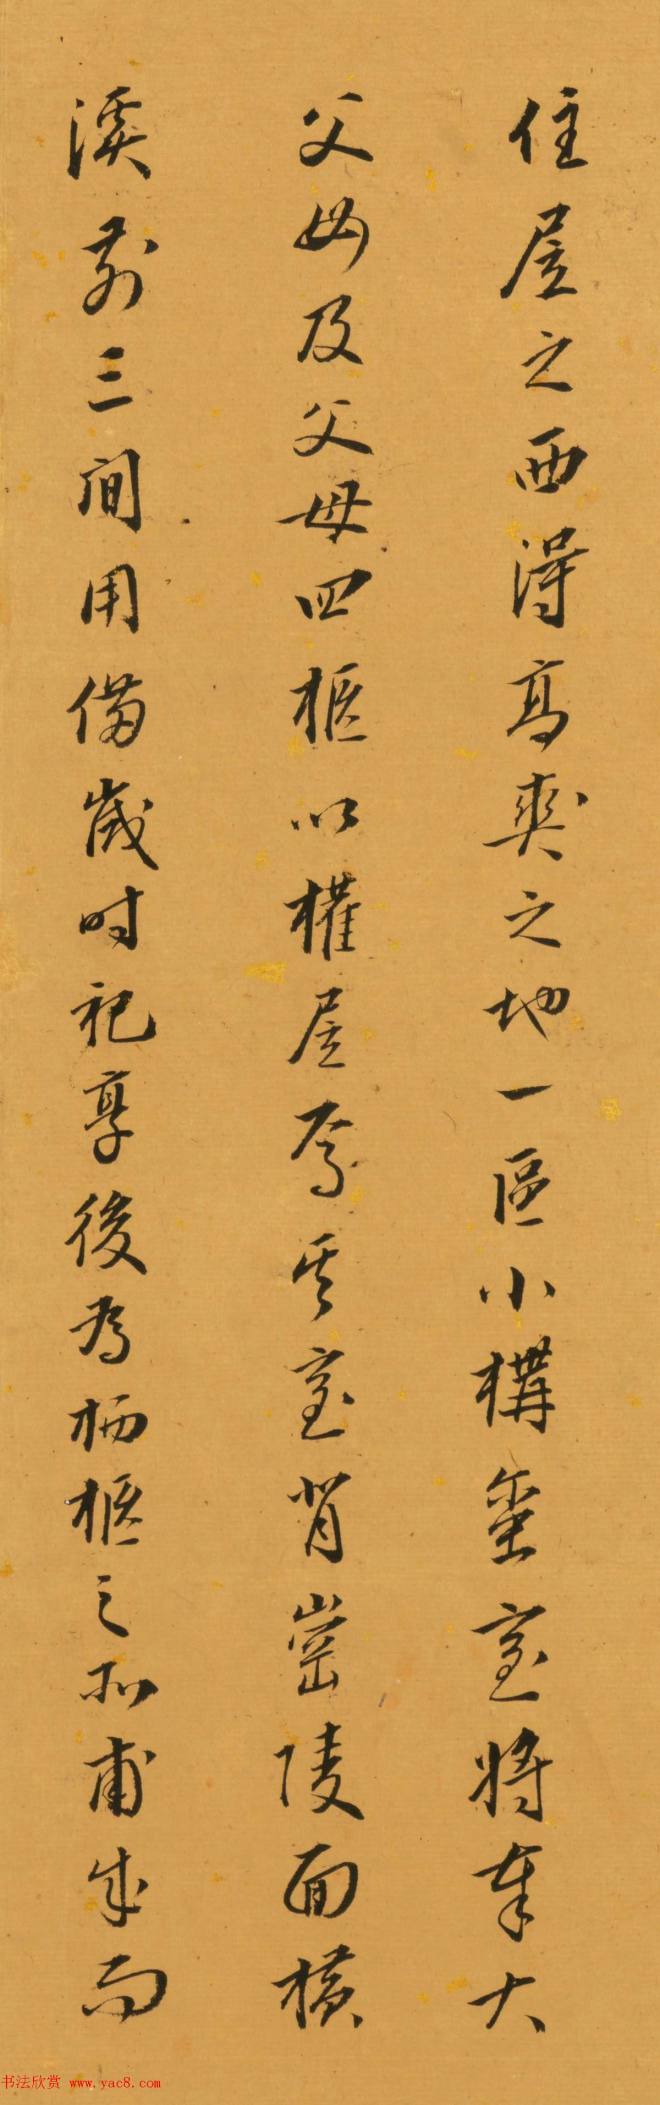 住屋之西得高爽之地一區小構堊室將奉大
父母及父母四柩以權厝焉其室背崇陵面橫
溪前三間用備歲時祀享後為栖柩之所甫成而
书法欣赏 www.yac8.com